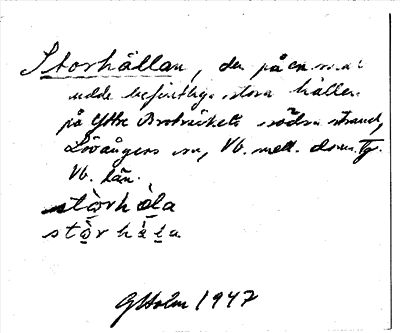 Storhällan, den på en
udde befintliga stora hällen
på Yttre Broträskets södra strand,
Lövångers sn, Vb. mell. doms. Tg.
Vb. län.
stòrhɑ̀la
stòrhála
G Holm 1947